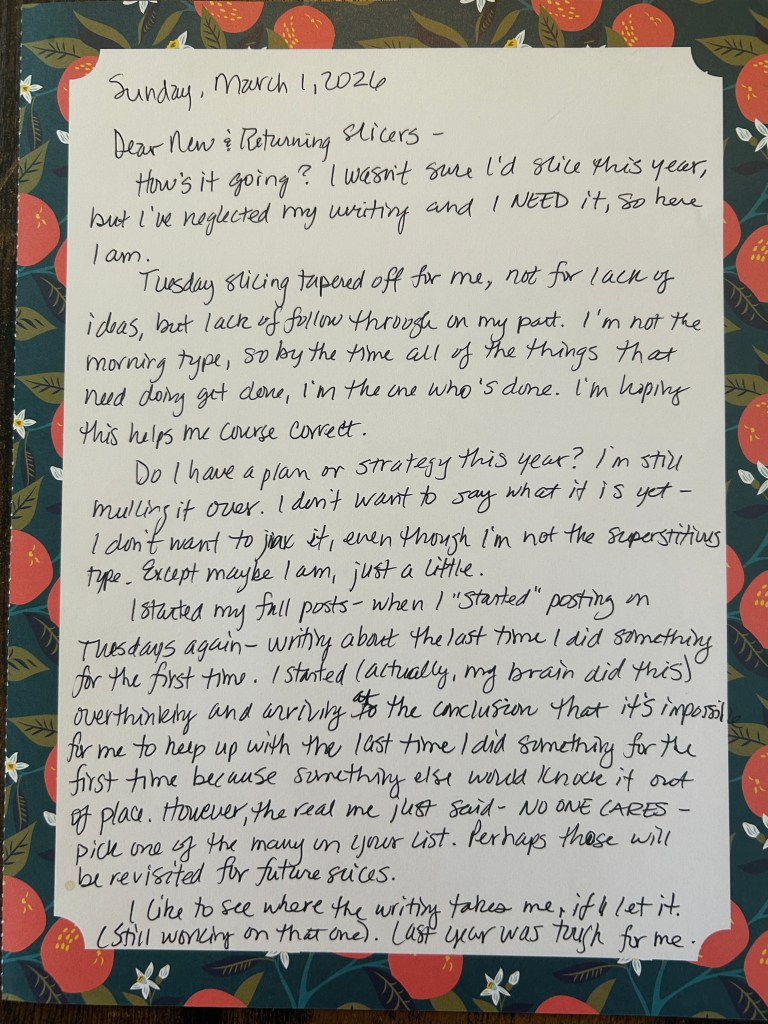 Sunday, March 1, 2026
Dear New & Returning Slicers -
How's it going? I wasn't sure I'd slice this year,
but I've neglected my writing and I NEED it, so here
I am.
Tuesday slicing tapered off for me, not for lack of
ideas, but lack of follow through on my part. I'm not the
morning type, so by the time all of the things that
need doing get done, I'm the one who's done. I'm hoping
this helps me course correct.
Do I have a plan or strategy this year? I'm still
mulling it over. I don't want to say what it is yet -
I don't want to jinx it, even though I'm not the superstitious
type. Except maybe I am, just a little.
I started my fall posts - when I "started" posting on
Tuesdays again - writing about the last time I did something
for the first time. I started (actually, my brain did this)
overthinking and arriving at the conclusion that it's impossibl
for me to keep up with the last time I did something for the
first time because something else would knock it out
of place. However, the real me just said - NO ONE CARES -
pick one of the many on your list. Perhaps those will
be revisited for future slices.
I like to see where the writing takes me, if I let it.
(Still working on that one). Last year was tough for me.